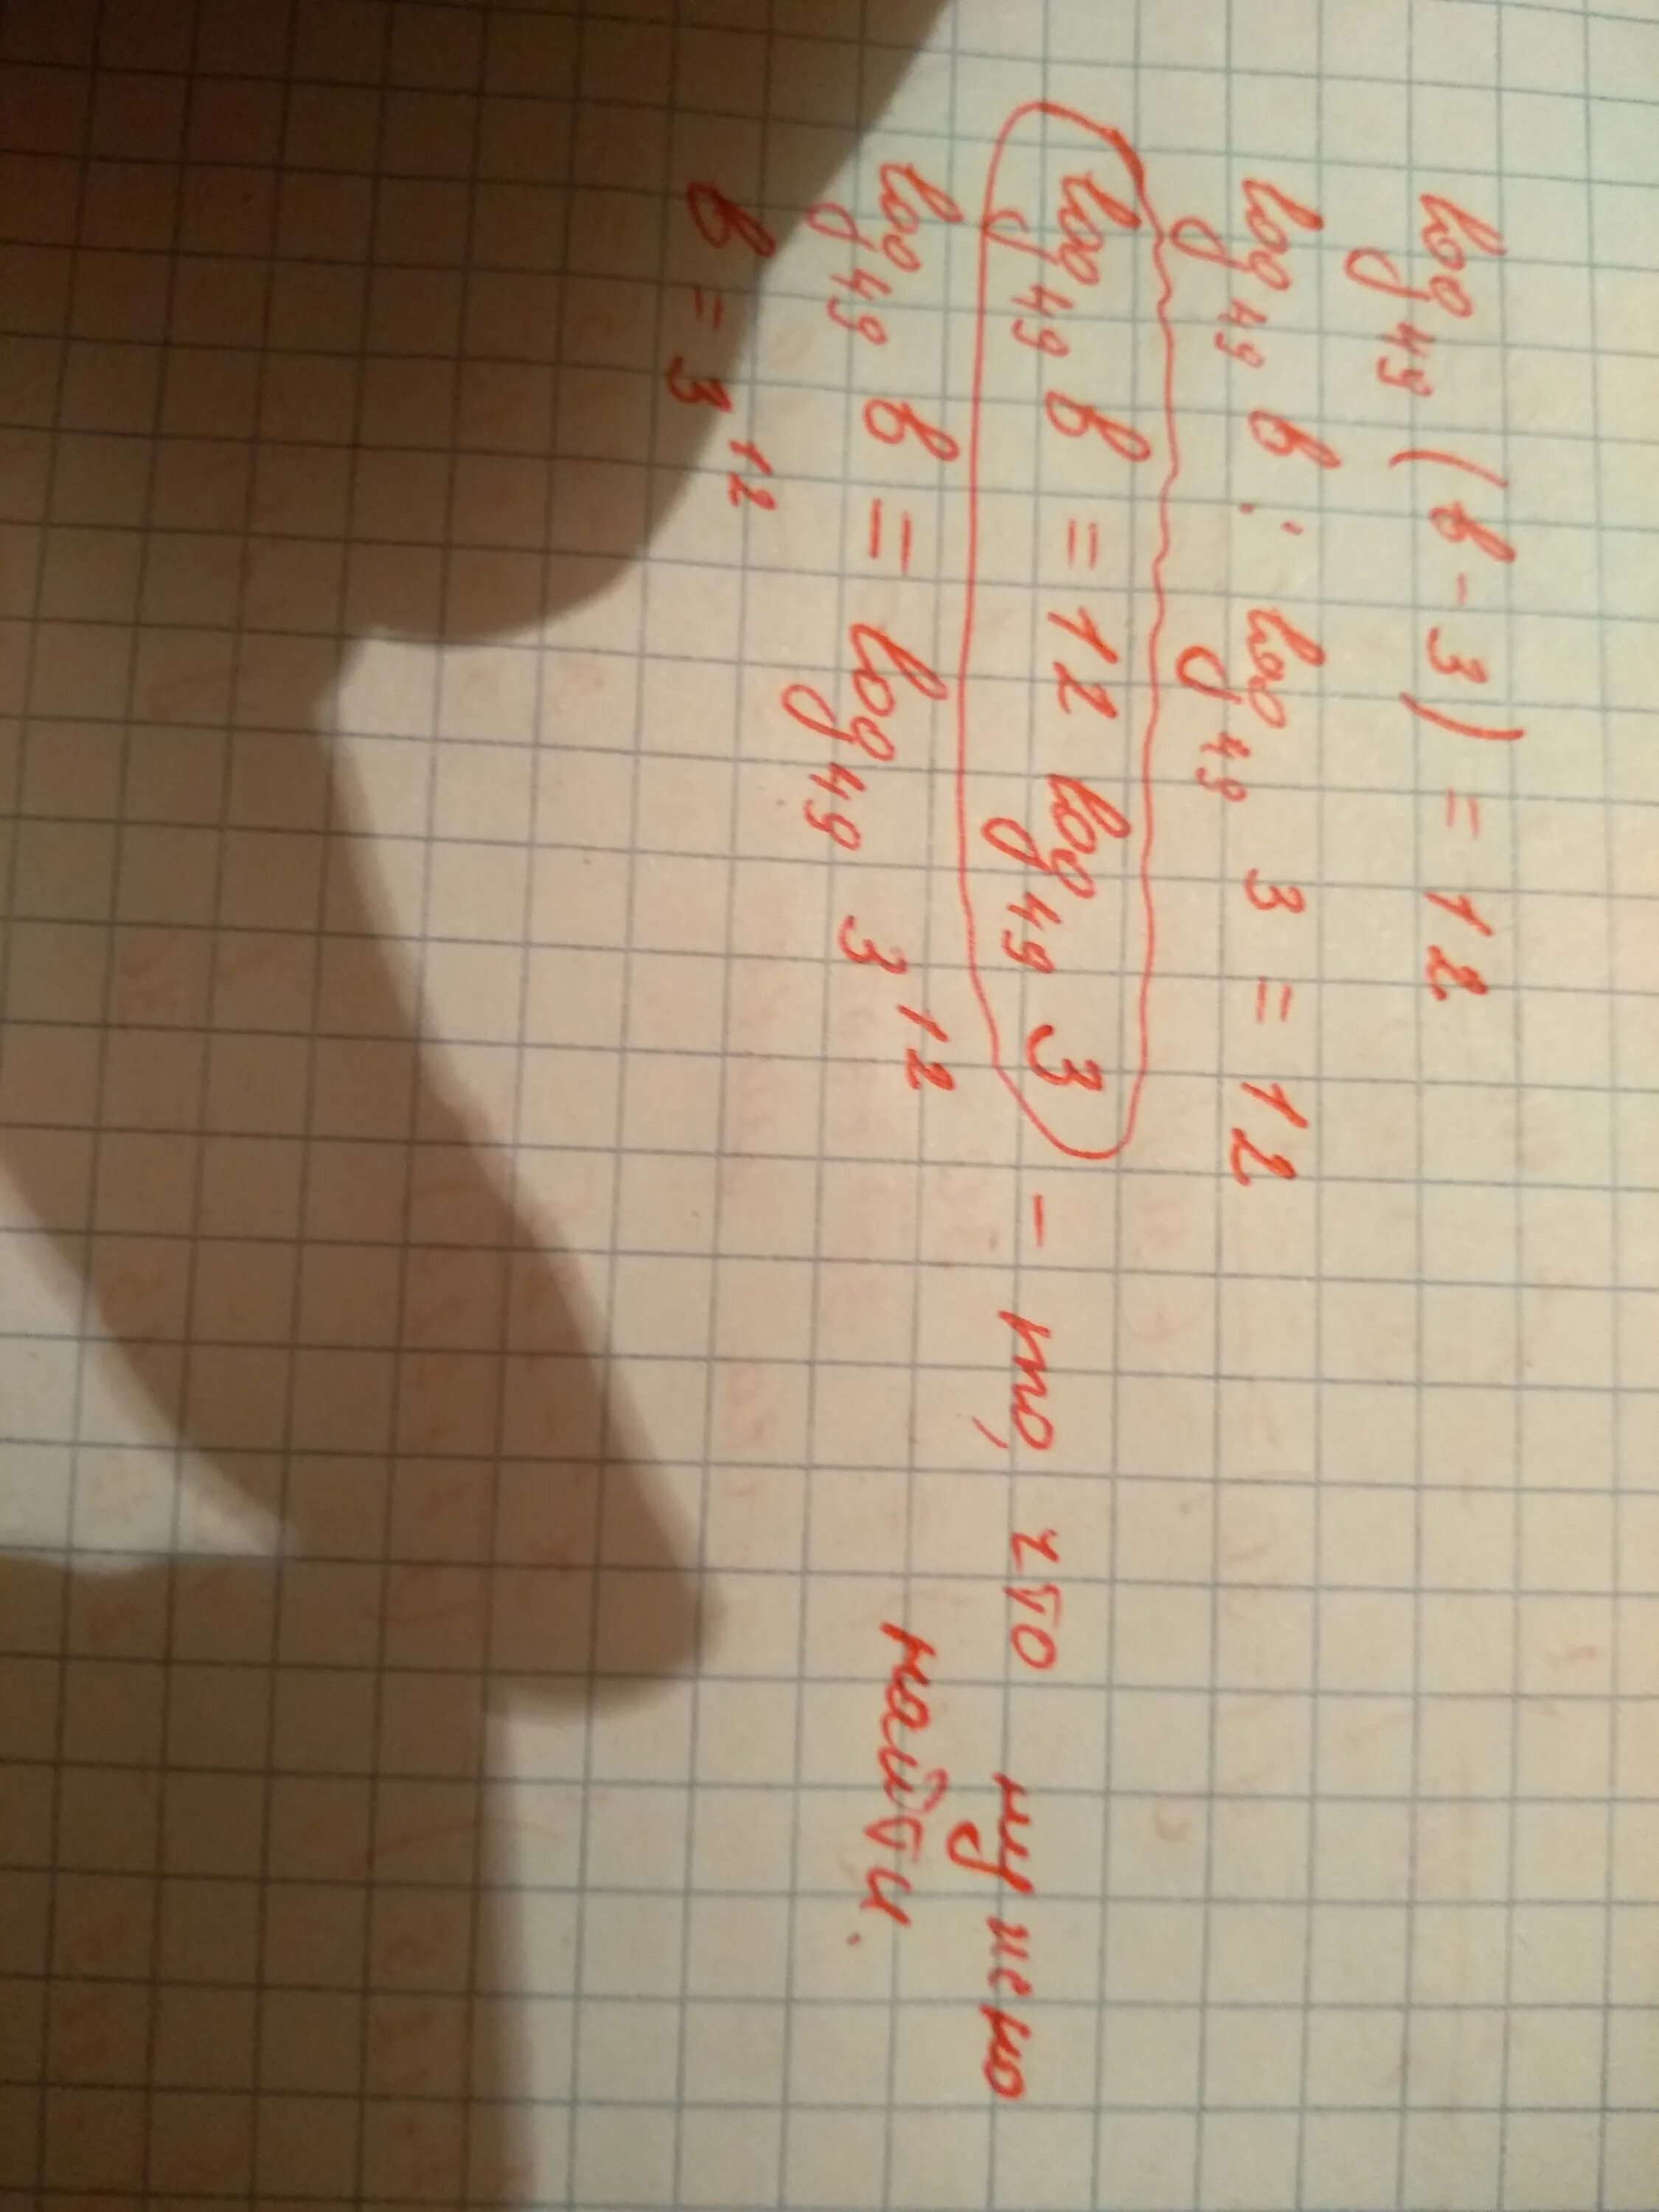 log₄₉ (в - 3) = 12
log₄₉ в : log₄₉ 3 = 12
log₄₉ в = 12 log₄₉ 3 - то, что нужно
найти.
log₄₉ в = log₄₉ 3¹²
в = 3¹²